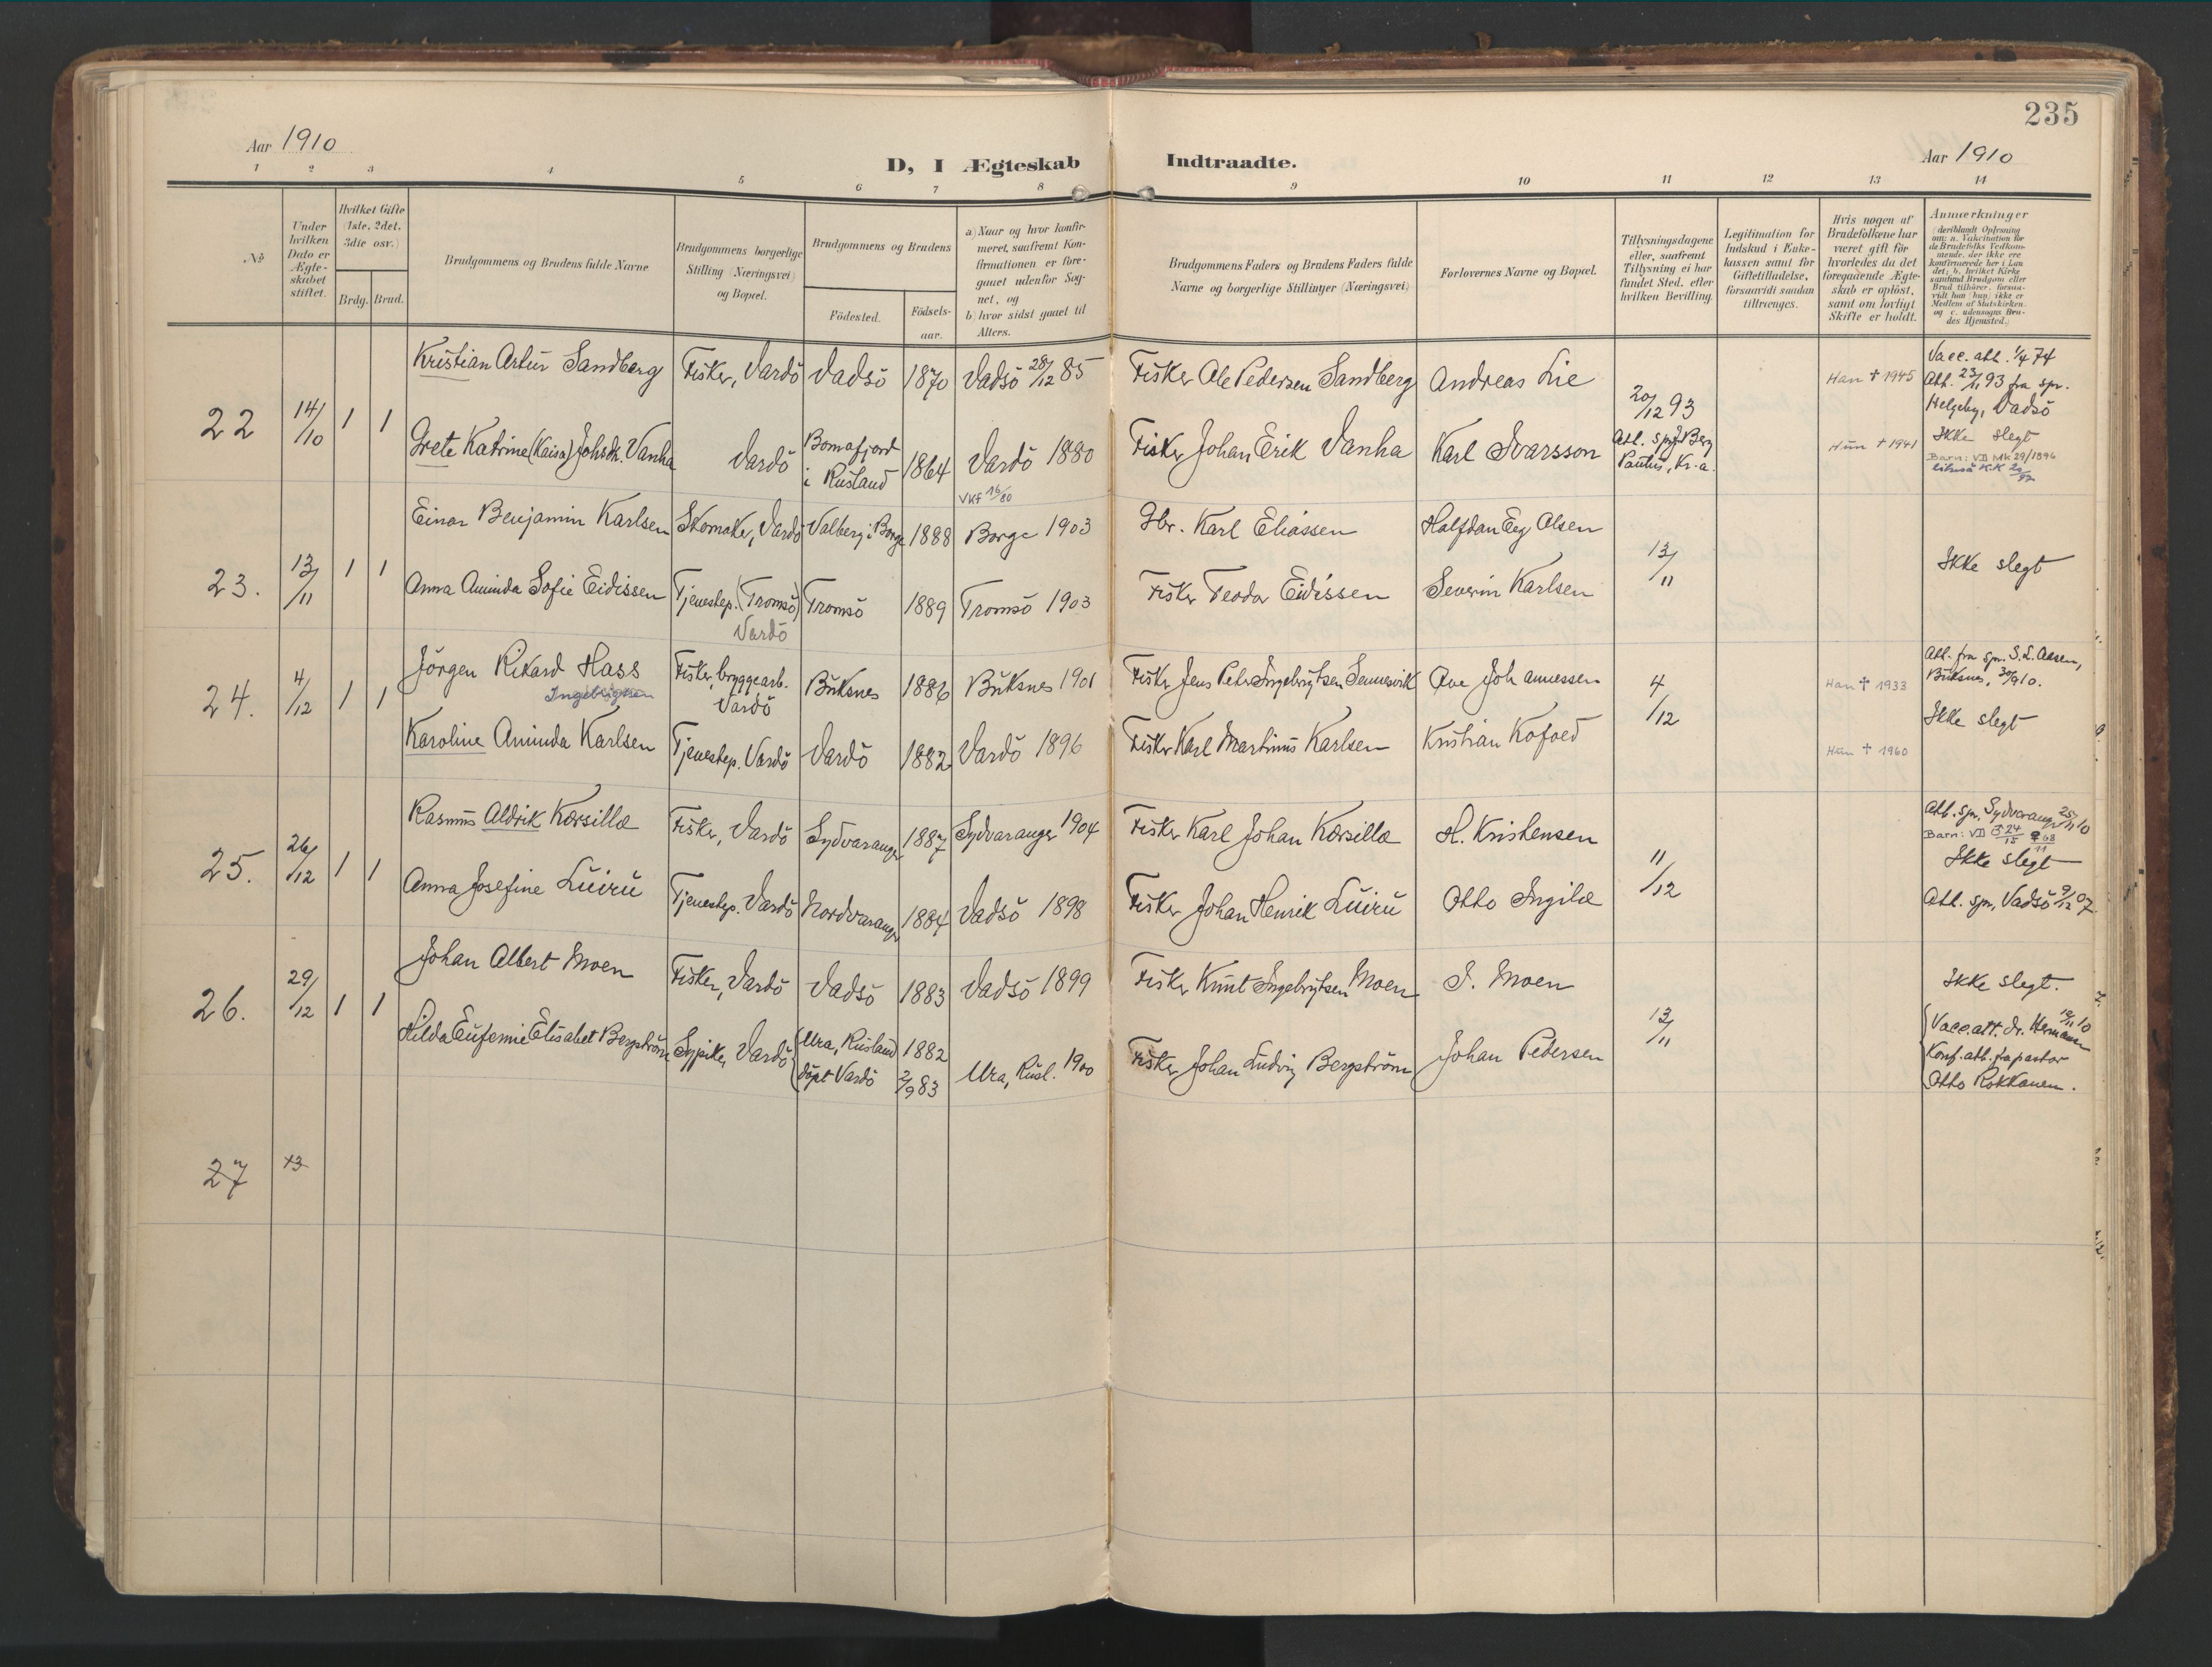 235
Aar 1910
D, I Ægteskab Indtraadte.
Aar 1910
1 2 3 4 5 6 7 8 9 10 11 12 13 14
No
Under
hvilken
Dato er
Ægte-
skabet
stiftet.
Hvilket Gifte
(1ste, 2det,
3die osv.)
Brdg. Brud.
Brudgommens og Brudens fulde Navne
Brudgommens borgerlige
Stilling (Næringsvei)
og Bopæl.
Brudgommens og Brudens
Fødested.
Fødsels-
aar.
a) Naar og hvor konfir-
meret, saafremt Kon-
firmationen er fore-
gaaet udenfor Sog-
net, og
b) hvor sidst gaaet til
Alters.
Brudgommens Faders og Brudens Faders fulde
Navne og borgerlige Stillinger (Næringsvei)
Forlovernes Navne og Bopæl.
Tillysningsdagene
eller, saafremt
Tillysning ei har
fundet Sted, efter
hvilken Bevilling.
Legitimation for
Indskud i Enke-
kassen samt for
Giftetilladelse,
forsaavidt saadan
tiltrænges.
Hvis nogen af
Brudefolkene har
været gift før
hvorledes da det
foregaaende Ægte-
skab er opløst,
samt om lovligt
Skifte er holdt.
Anmærkninger
(deriblandt Oplysning
om: a. Vakcination for
de Brudefolks Vedkom-
mende, der ikke ere
konfirmerede her i Lan
det; b. hvilket Kirke
samfund Brudgom eller
Brud tilhører, forsaa-
vidt han (hun) ikke er
Medlem af Statskirken.
og c. udensogns Bru-
des Hjemsted.)
22 14/10 1 1
Kristian Artur Sandberg Fisker, Vardö Vadsö 1870 Vadsö 28/12 85 Fisker Ole Pedersen Sandberg Andreas Lie 20/12 93 Han † 1945 Vacc. att. 1/4 74
Att. 23/11 93 fra spr.
Helgeby, Vadsö
Grete Katrine (Kaisa) Johsdtr. Vanha Vardö Bomafjord
i Rusland 1864 Vardö 1880
VKf 16/80
Fisker Johan Erik Vanha Karl Ivarsson Att. spr J Berg
Paulus, Kr.a. Hun † 1941 Ikke slegt
Barn: VD Mk 29/1896
23. 13/11 1 1
Einar Benjamin Karlsen Skomaker, Vardö Valberg i Borge 1888 Borge 1903 Gbr. Karl Eliassen Halfdan Eeg Olsen 13/11 Ikke slegt
Anna Aminda Sofie Eidissen Tjenestep. (Tromsö)
Vardö Tromsö 1889 Tromsö 1903 Fisker Teodor Eidissen Severin Karlsen
24. 4/12 1 1
Jörgen Rikard Hass
Ingebrigtsen
Fisker, bryggearb.
Vardö Buksnes 1886 Buksnes 1901 Fisker Jens Peter Ingebrigtsen Sennesvik Ove Johannessen 4/12 Han † 1933 Att. fra spr. S. L. Aasen,
Buksnes, 30/9 10.
Ikke slegt
Karoline Aminda Karlsen Tjenestep. Vardö Vardö 1882 Vardö 1896 Fisker Karl Martinus Karlsen Kristian Kofoed Hun † 1960
25. 26/12 1 1
Rasmus Aldrik Korsilla Fisker, Vardö Sydvaranger 1887 Sydvaranger 1904 Fisker Karl Johan Korsilla H. Kristensen 11/12 Att. spr. Sydvaranger 25/11 10
Barn: VD
Ikke slegt
Anna Josefine Luiru Tjenestep. Vardö Nordvaranger 1884 Vadsö 1898 Fisker Johan Henrik Luiru Otto Ingila Att. spr. Vadsö 9/12 07.
26. 29/12 1 1
Johan Albert Moen Fisker, Vardö Vadsö 1883 Vadsö 1899 Fisker Knut Ingebrigtsen Moen I. Moen 13/11 Ikke slegt.
Hilda Eufemie Elisabet Bergström Sypike, Vardö Ura, Rusland
döpt Vardö 1882
2/9 83 Ura, Rusl. 1900 Fisker Johan Ludvig Bergström Johan Pedersen Vacc. att. dr. Hermann
Konf. att. fra pastor
Otto Rokkanen.
27 13